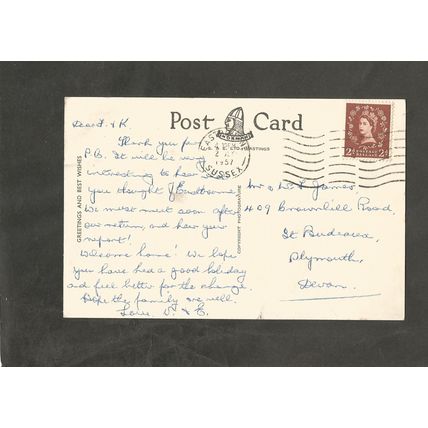 Post Card
NORMAN
S. & E. LTD. HASTINGS
GREETINGS AND BEST WISHES
COPYRIGHT PHOTOGRAPH
1957
SUSSEX
2d POSTAGE REVENUE 2d
Dear F. & K.
Thank you for
P.B. It will be very
interesting to hear
you thought of Eastbourne.
We must meet soon after
our return, and hear your
report!
Welcome home! We hope
you have had a good holiday
and feel better for the change.
Hope the family are well.
Love V. & E.
Mr & Mrs F. James
409 Crownhill Road,
St Budeaux,
Plymouth,
Devon.